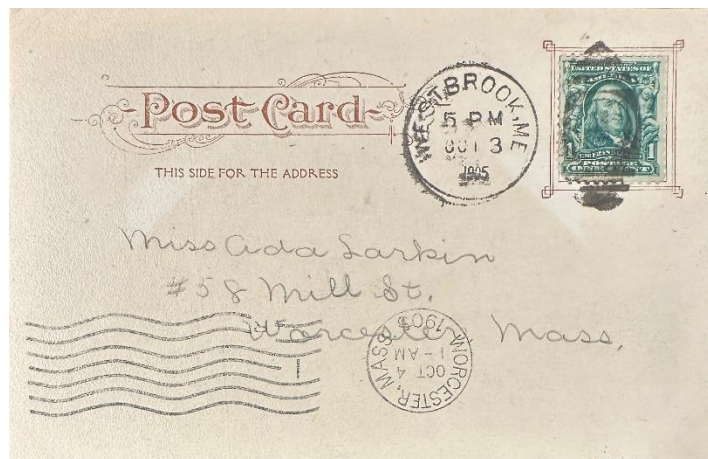 Post Card
THIS SIDE FOR THE ADDRESS
WESTBROOK, ME
5 PM
OCT 3
1905
UNITED STATES OF AMERICA
1 1
POSTAGE
ONE CENT
Miss Ada Larkin
#58 Mill St.
Worcester Mass.
WORCESTER, MASS.
OCT 4
1-AM
1905
1